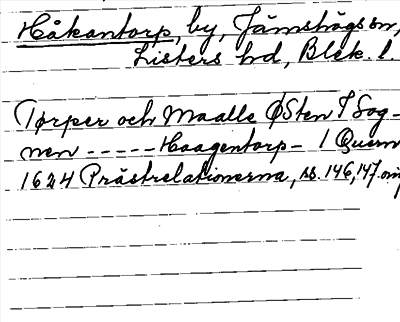 Håkantorp, by, Jämshögs sn,
Listers hd, Blek. l.
Tørper och Maalle ØSten I Sog-
nen ----- Haagentorp - 1 Quern
1624 Prästrelationerna, s. 146, 147.